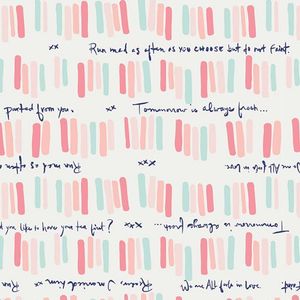 xx Run mad as often as you choose but do not faint.
parted from you. xx Tomorrow is always fresh...
Run mad as often xxx We are All fools in love
d you like to have you tea first? xxx Tomorrow is always fresh...
Run We are All fools in love.